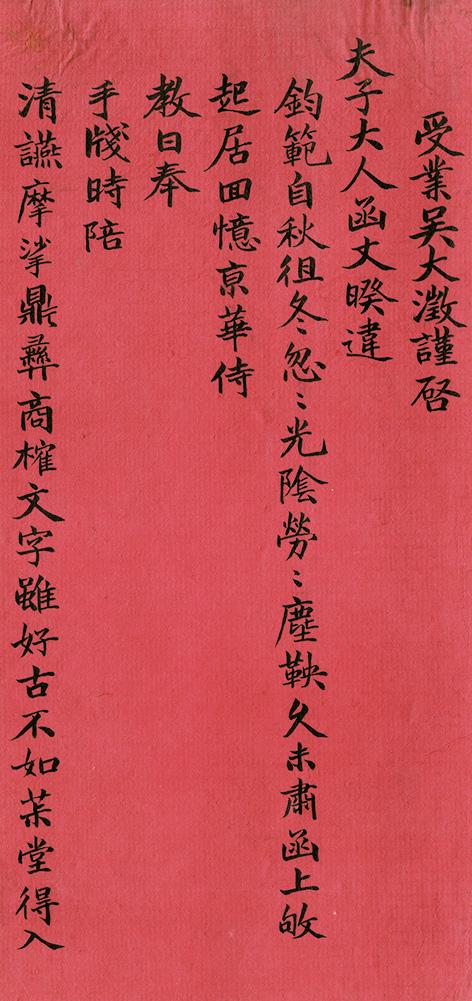 受業吴大澂謹啓
夫子大人函丈暌違
鈞範自秋徂冬忽〻光陰勞〻塵鞅久未肅函上敂
起居回憶亰華侍
教日奉
手牋時陪
清讌摩挲鼎彝商榷文字雖好古不如芣堂得入